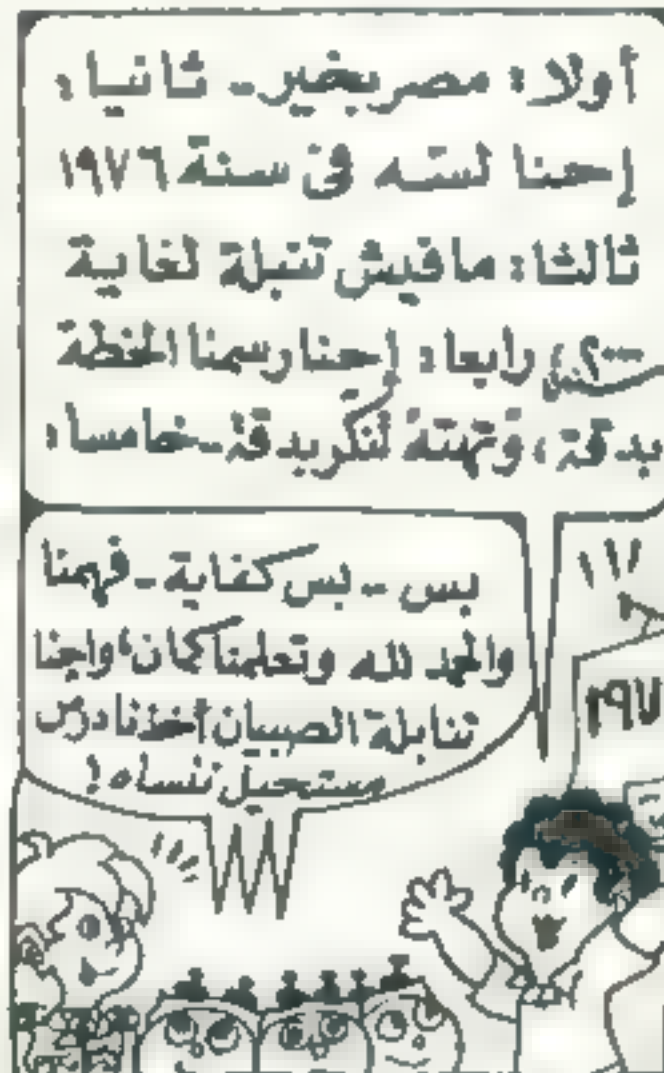 أولا : مصر بخير - ثانيا :
إحنا لسه في سنة ١٩٧٦
ثالثا : مافيش تنبلة لغاية
٢٠٠٠ ، رابعا : إحنا رسمنا الخطة
بدقة ، وتهتة لنكر بدقة - خامسا :
بس -- بس كفاية - فهمنا
والحمد لله وتعلمنا كمان ، واحنا
تنابلة الصبيان أخذنا درس
مستحيل ننساه !
١٩٧